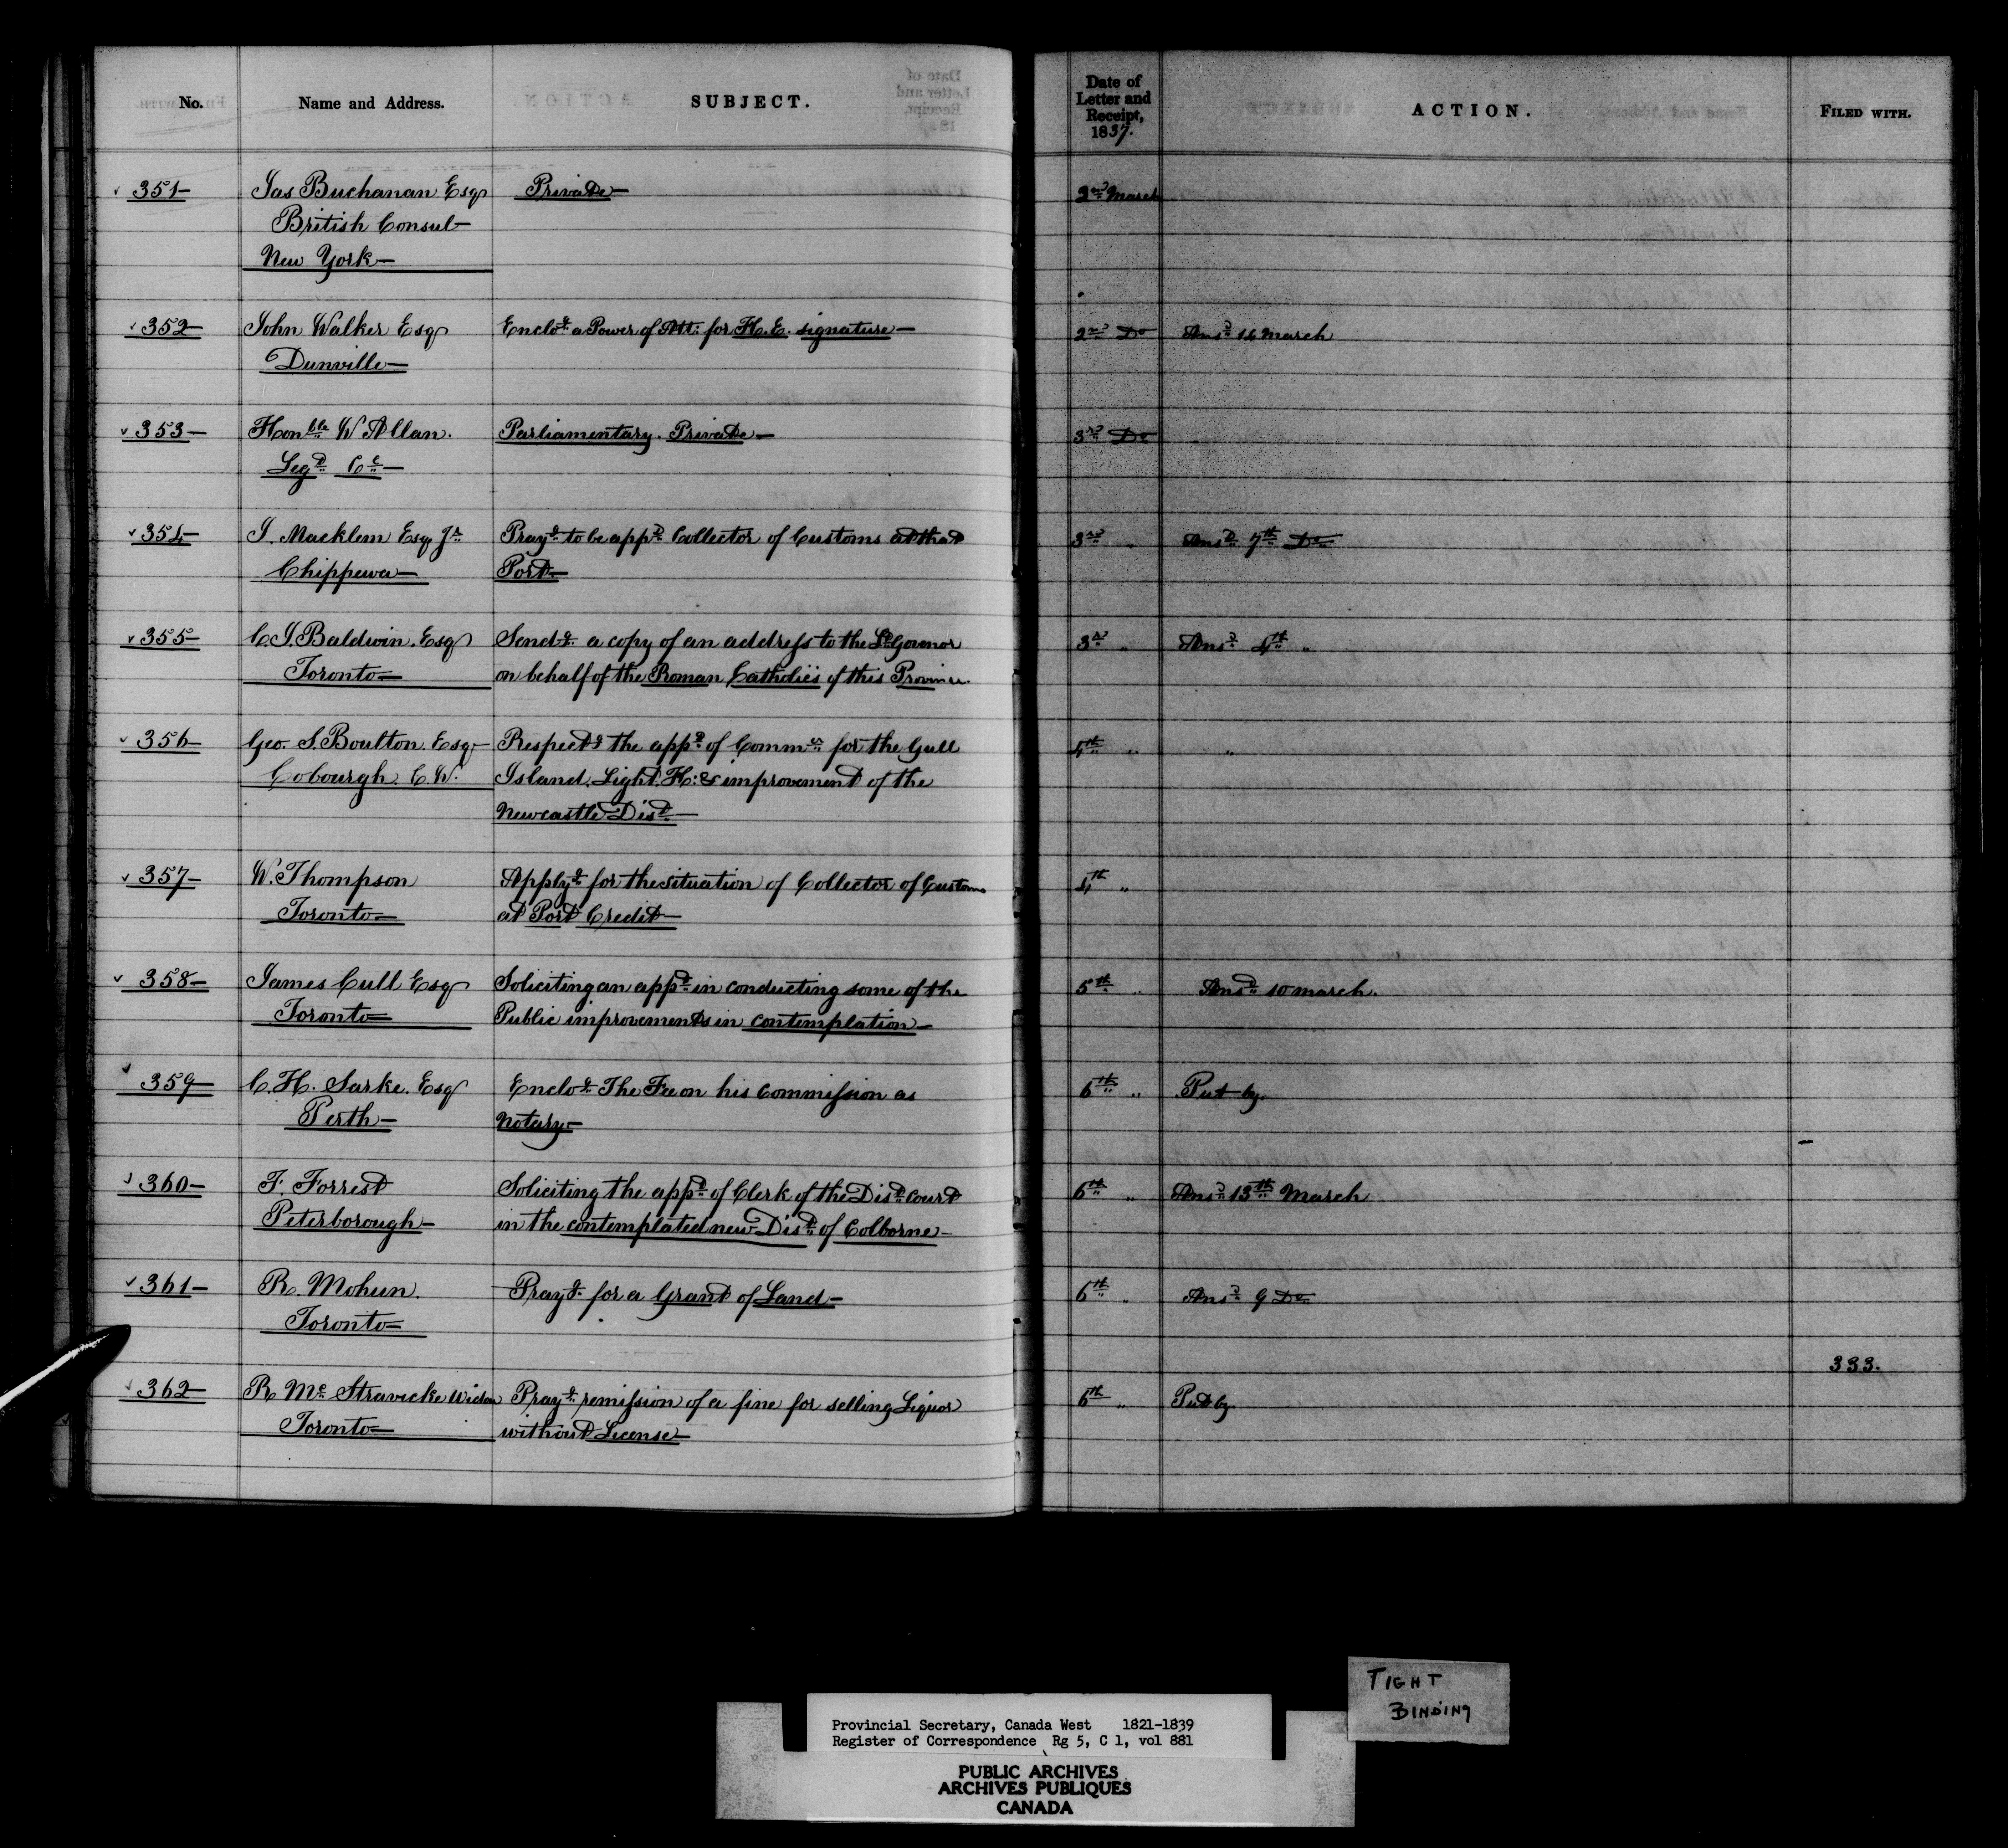 No. Name and Address. SUBJECT. Date of Letter and Receipt, 1837. ACTION. FILED WITH.
351 Jas Buchanan Esqr Private 2nd March
British Consul
New York
352 John Walker Esqr Enclog a Power of Att: for H.E. signature 2nd Do Ansd 14 March
Dunville
353 Honble W Allan. Parliamentary. Private 3rd Do
Legr Cl
354 J. Macklem Esqr Jr Prayg to be appd Collector of Customs at that 3rd " Ansd 7th Do
Chippewa Port
355 C. J. Baldwin. Esqr Sendg a copy of an address to the Lt Govrnor 3rd " Ansd 4th "
Toronto on behalf of the Roman Catholics of this Province.
356 Geo. S. Boulton. Esqr Respectg the appt of Commrs for the Gull 4th " "
Cobourgh. C.W. Island. Light. H: & improvement of the
Newcastle Dist.
357 W. Thompson Applyg for the situation of Collector of Customs 4th "
Toronto at Port Credit
358 James Cull Esqr Soliciting an appt in conducting some of the 5th " Ansd 10 March.
Toronto Public improvements in contemplation
359 C. H. Sarke. Esqr Enclog The Fee on his Commission as 6th " Put by
Perth Notary
360 T. Forrest Soliciting the appt of Clerk of the Dist. Court 6th " Ansd 13th March
Peterborough in the contemplated new Dist. of Colborne
361 R. Mohun. Prayg for a Grant of Land 6th " Ansd 9 Do
Toronto
333.
362 R Mc Stravicke Widow Prayg remission of a fine for selling Liquor 6th " Put by
Toronto without License
TIGHT
BINDING
Provincial Secretary, Canada West 1821-1839
Register of Correspondence Rg 5, C 1, vol 881
PUBLIC ARCHIVES
ARCHIVES PUBLIQUES
CANADA